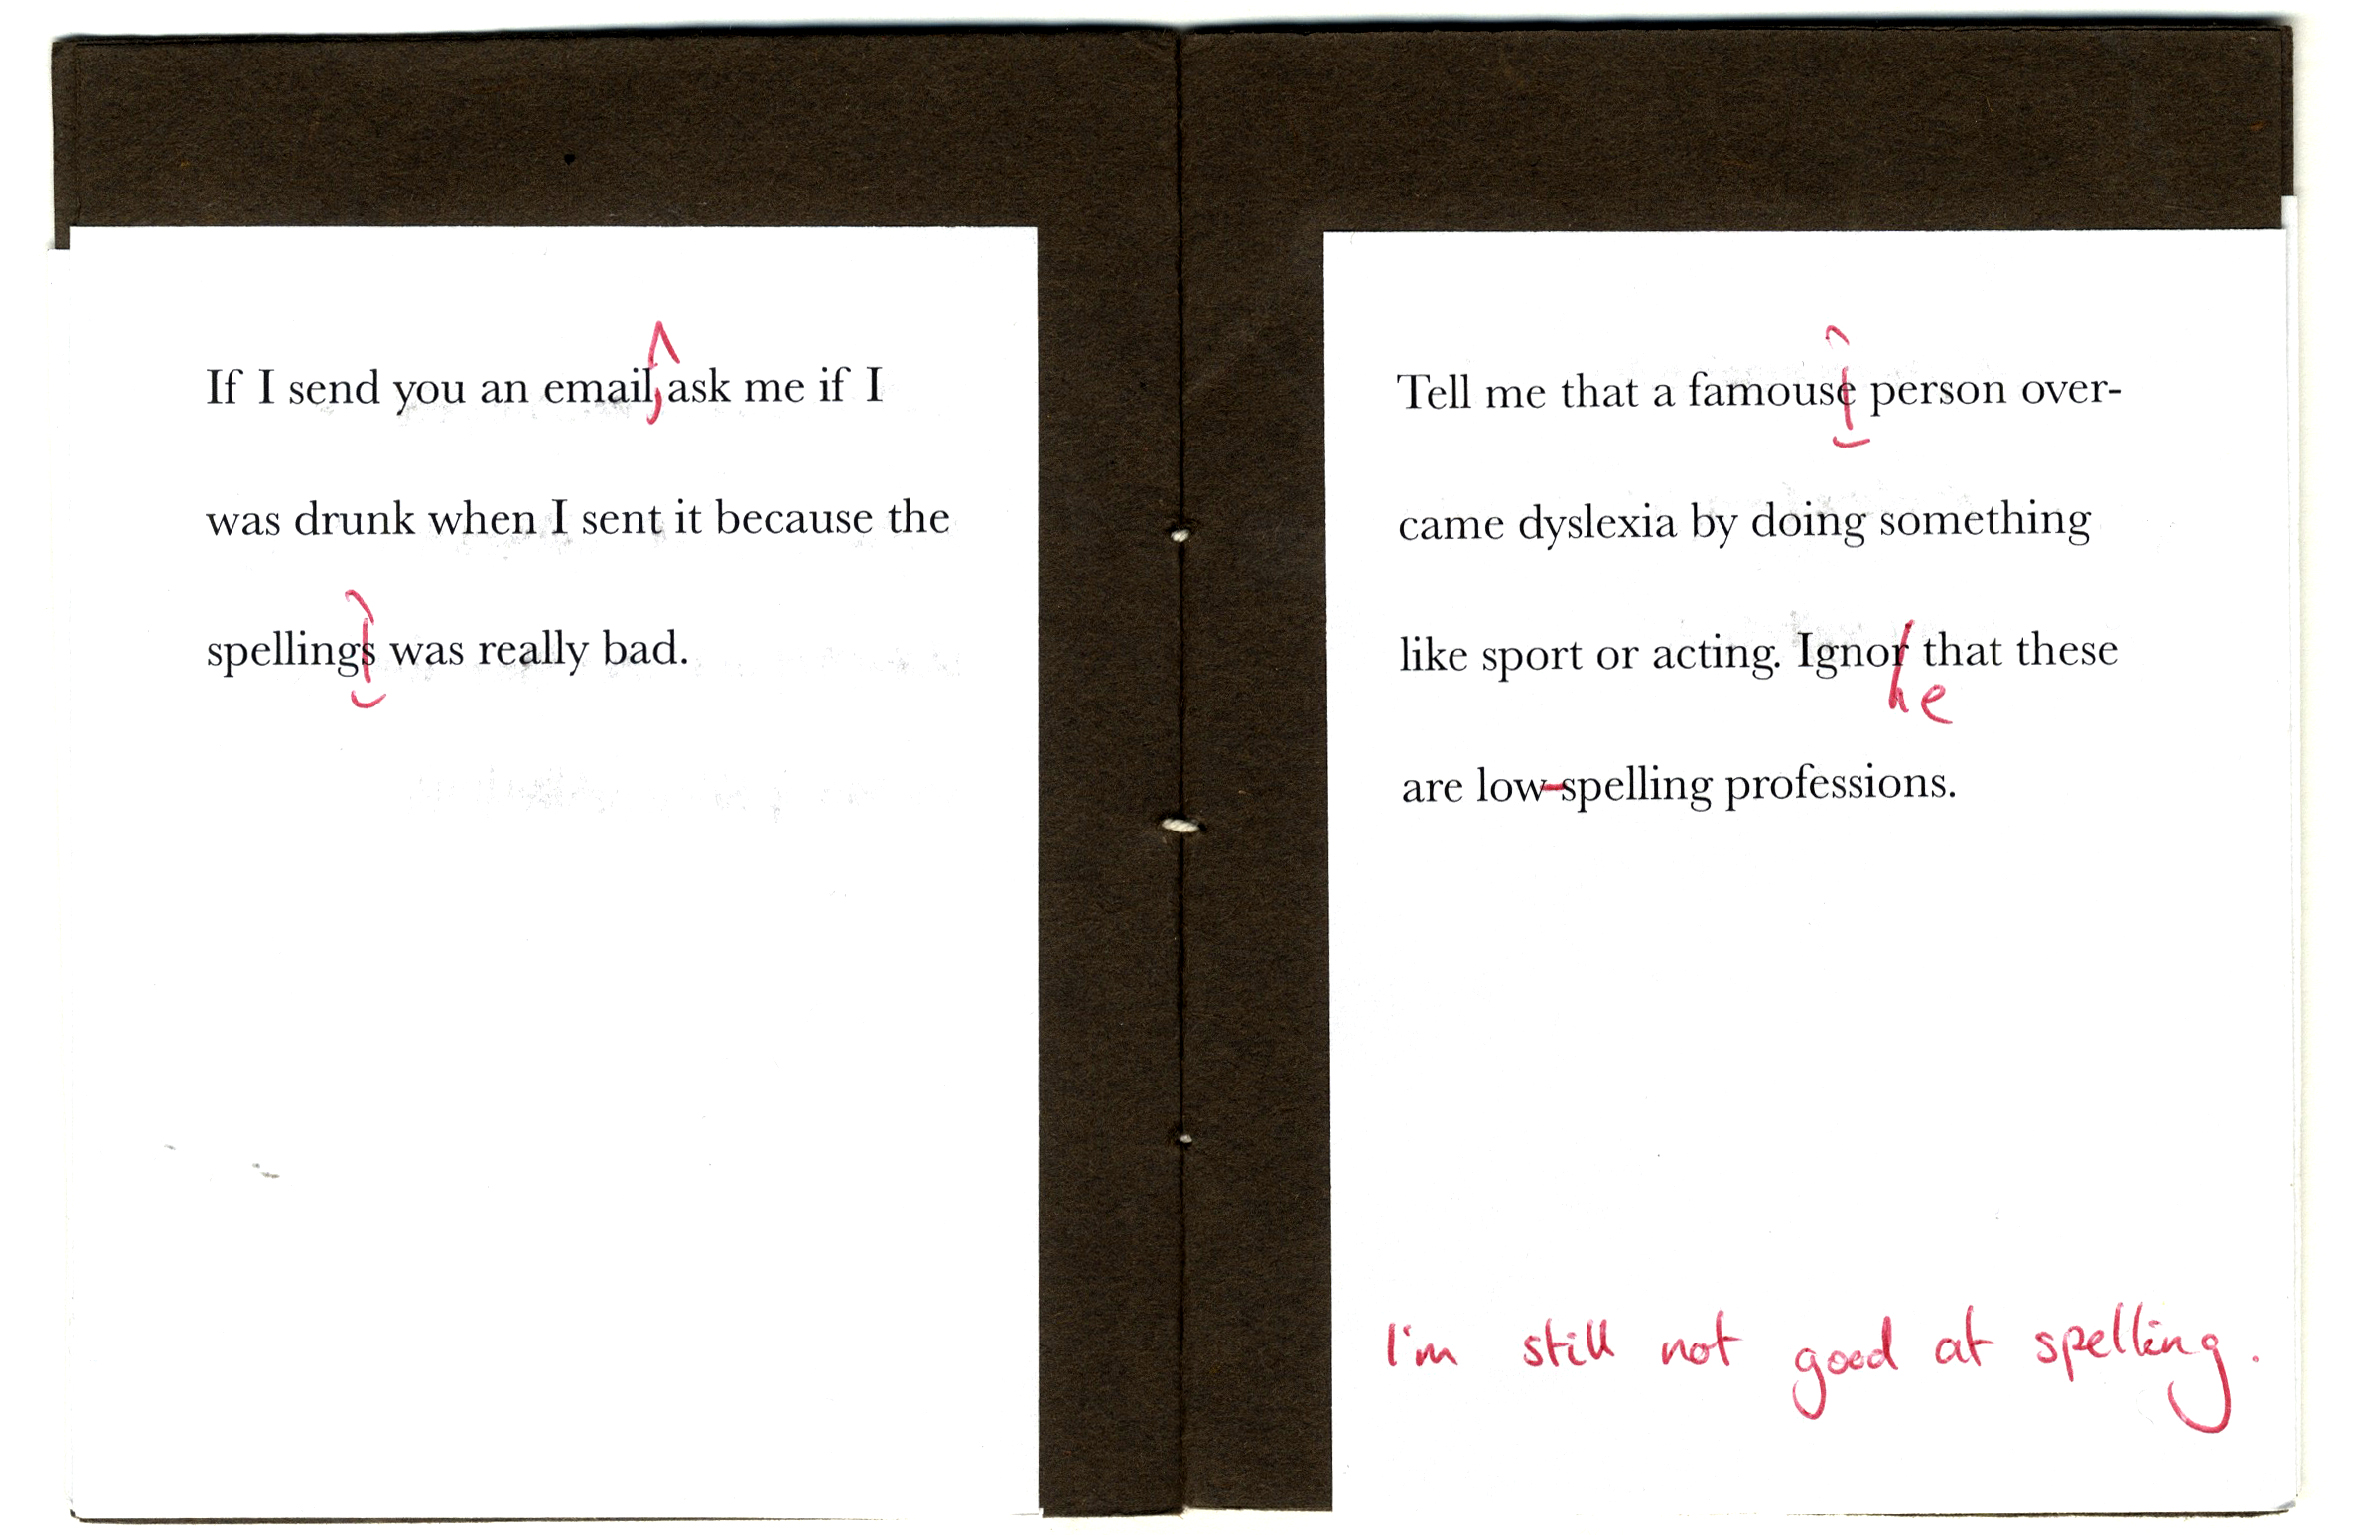 If I send you an email, ask me if I
was drunk when I sent it because the
spellings was really bad.
Tell me that a famouse person over-
came dyslexia by doing something
like sport or acting. Ignor that these
he
are low-spelling professions.
I'm still not good at spelling.